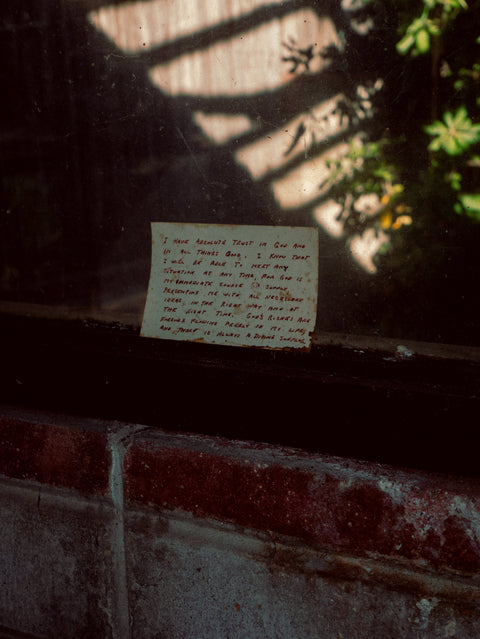 I HAVE ABSOLUTE TRUST IN GOD AND
IN ALL THINGS GOOD. I KNOW THAT
I WILL BE ABLE TO MEET ANY
SITUATION AT ANY TIME, FOR GOD IS
MY IMMEDIATE SOURCE OF SUPPLY,
PRESENTING ME WITH ALL NECESSARY
IDEAS IN THE RIGHT WAY AND AT
THE RIGHT TIME. GOD'S RICHES ARE
FOREVER FLOWING FREELY IN MY LIFE,
AND THERE IS ALWAYS A DIVINE SURPLUS.